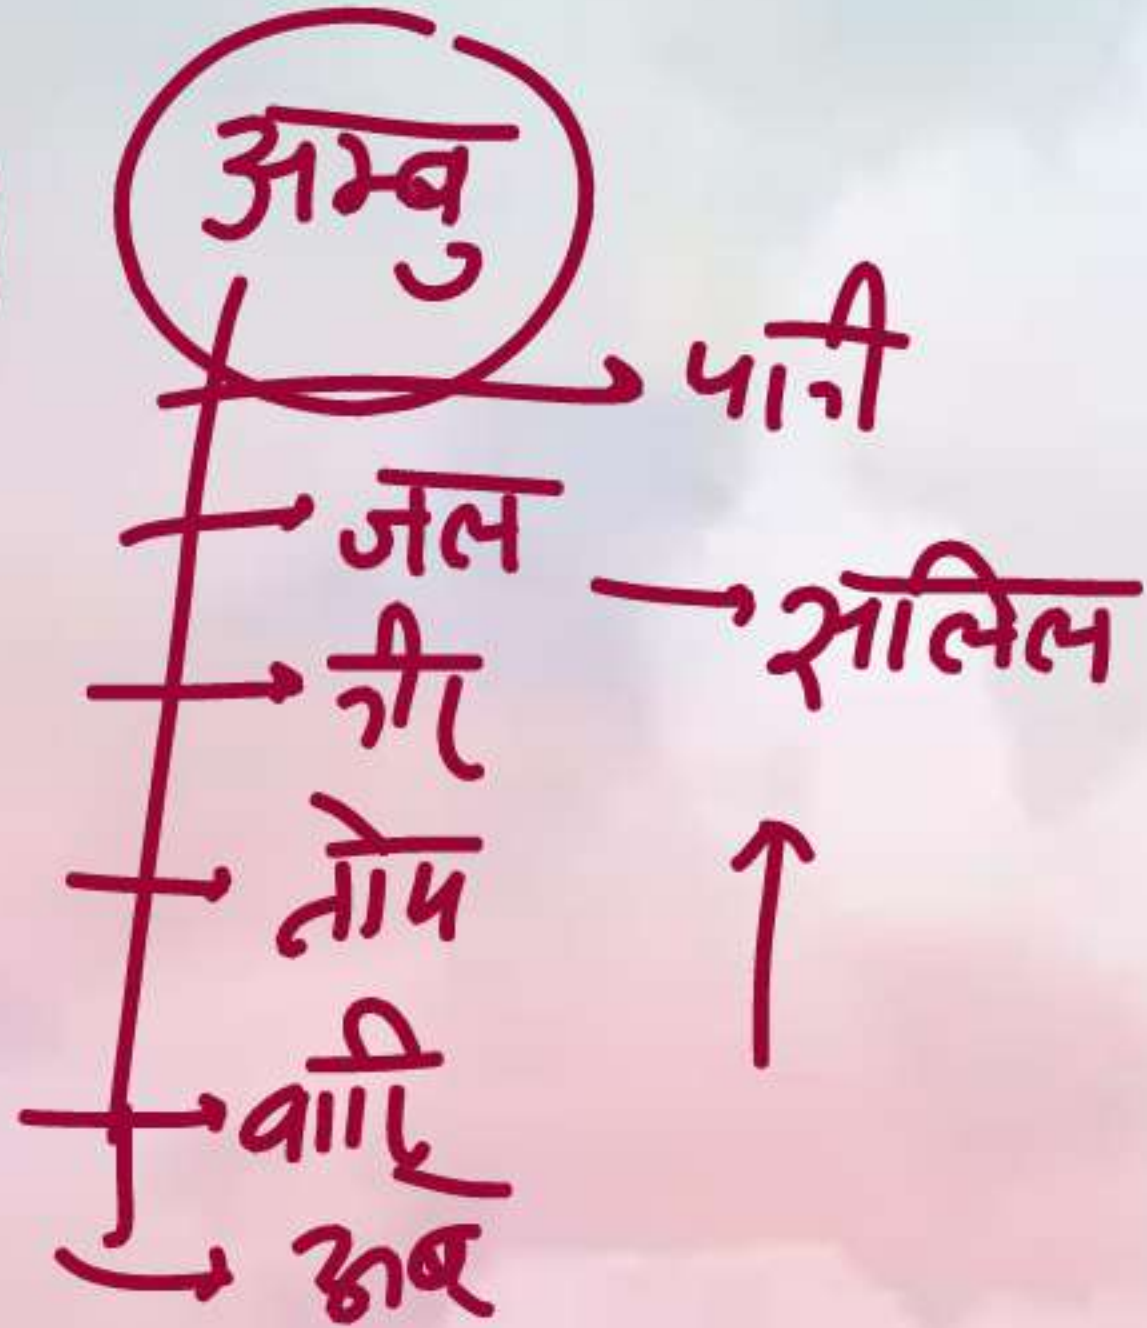 अम्बु
पानी
जल
सलिल
नीर
तोय
वारि
अब्